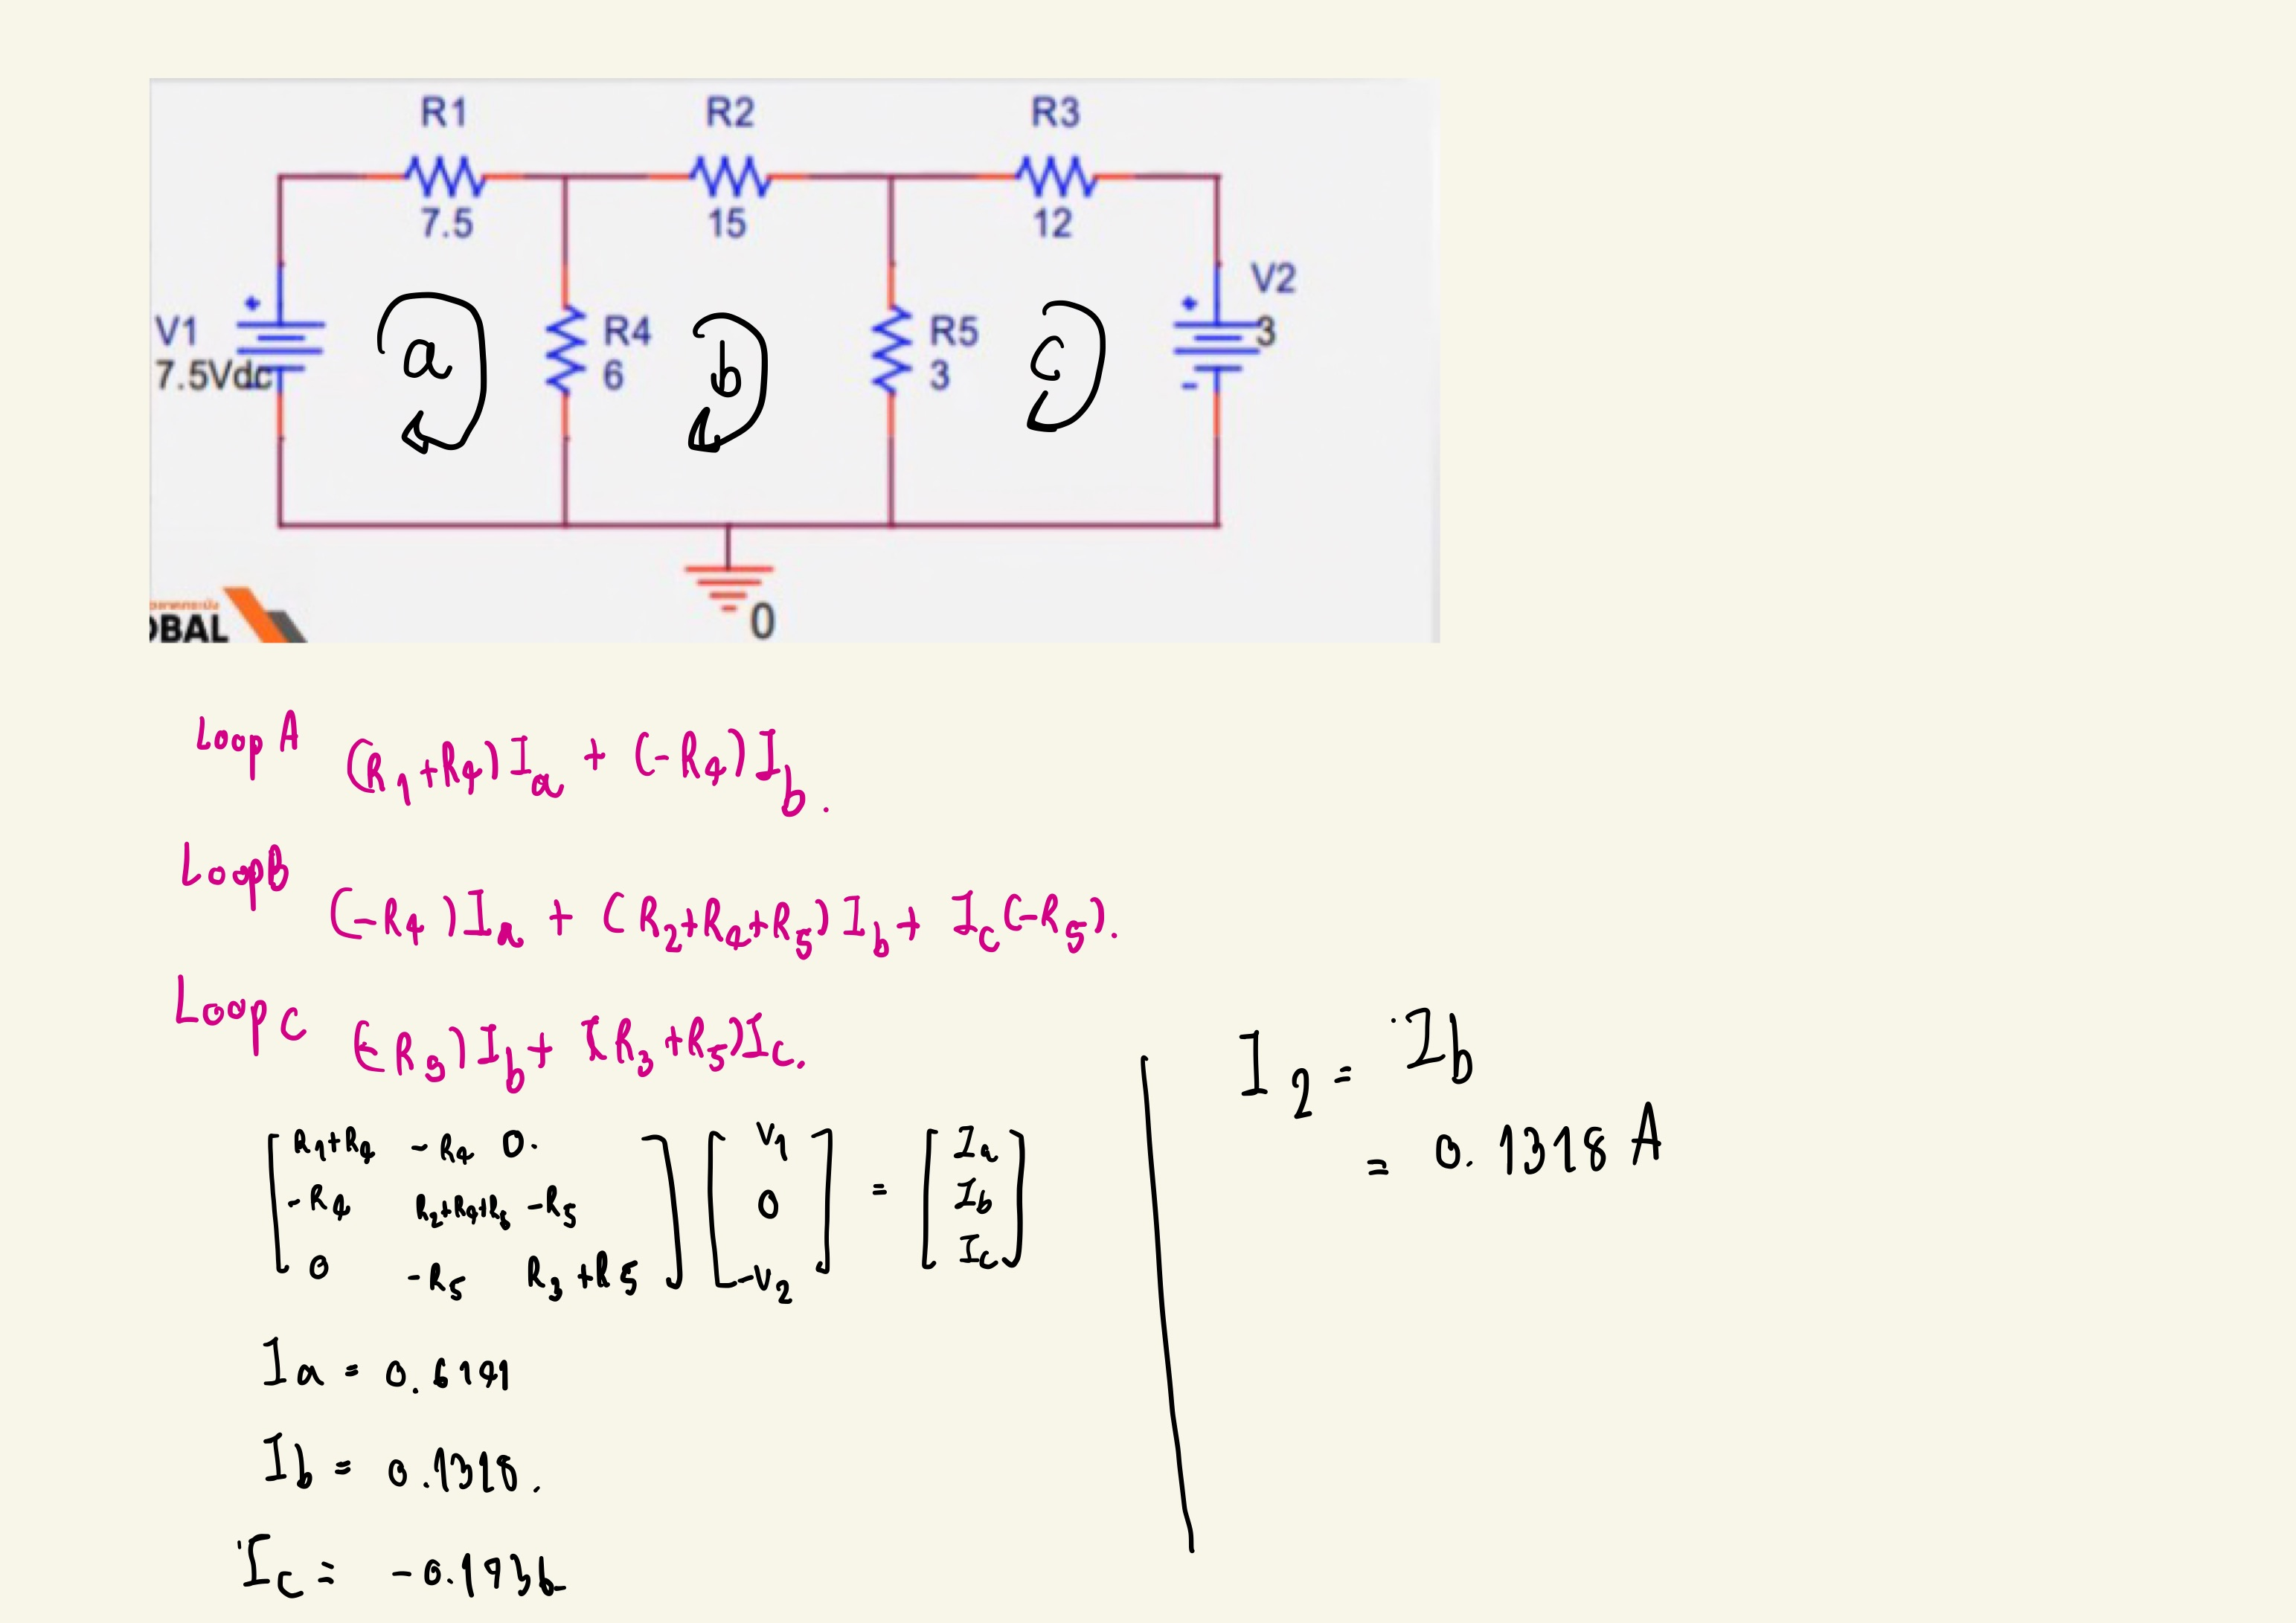 R1 R2 R3
7.5 15 12
V1
7.5Vdc
a
R4
6
b
R5
3
c
V2
3
0
OBAL
Loop A (R₁+R₄)Iₐ + (-R₄)I_b.
Loop B (-R₄)Iₐ + (R₂+R₄+R₅)I_b + I_c(-R₅).
Loop C (-R₅)I_b + (R₃+R₅)I_c.
[R₁+R₄ -R₄ 0.] [V₁] = [Iₐ]
[-R₄ R₂+R₄+R₅ -R₅] [0] [I_b]
[0 -R₅ R₃+R₅] [-V₂] [I_c]
Iₐ = 0.6191
I_b = 0.1318.
I_c = -0.1736
I₂ = I_b
= 0.1318 A